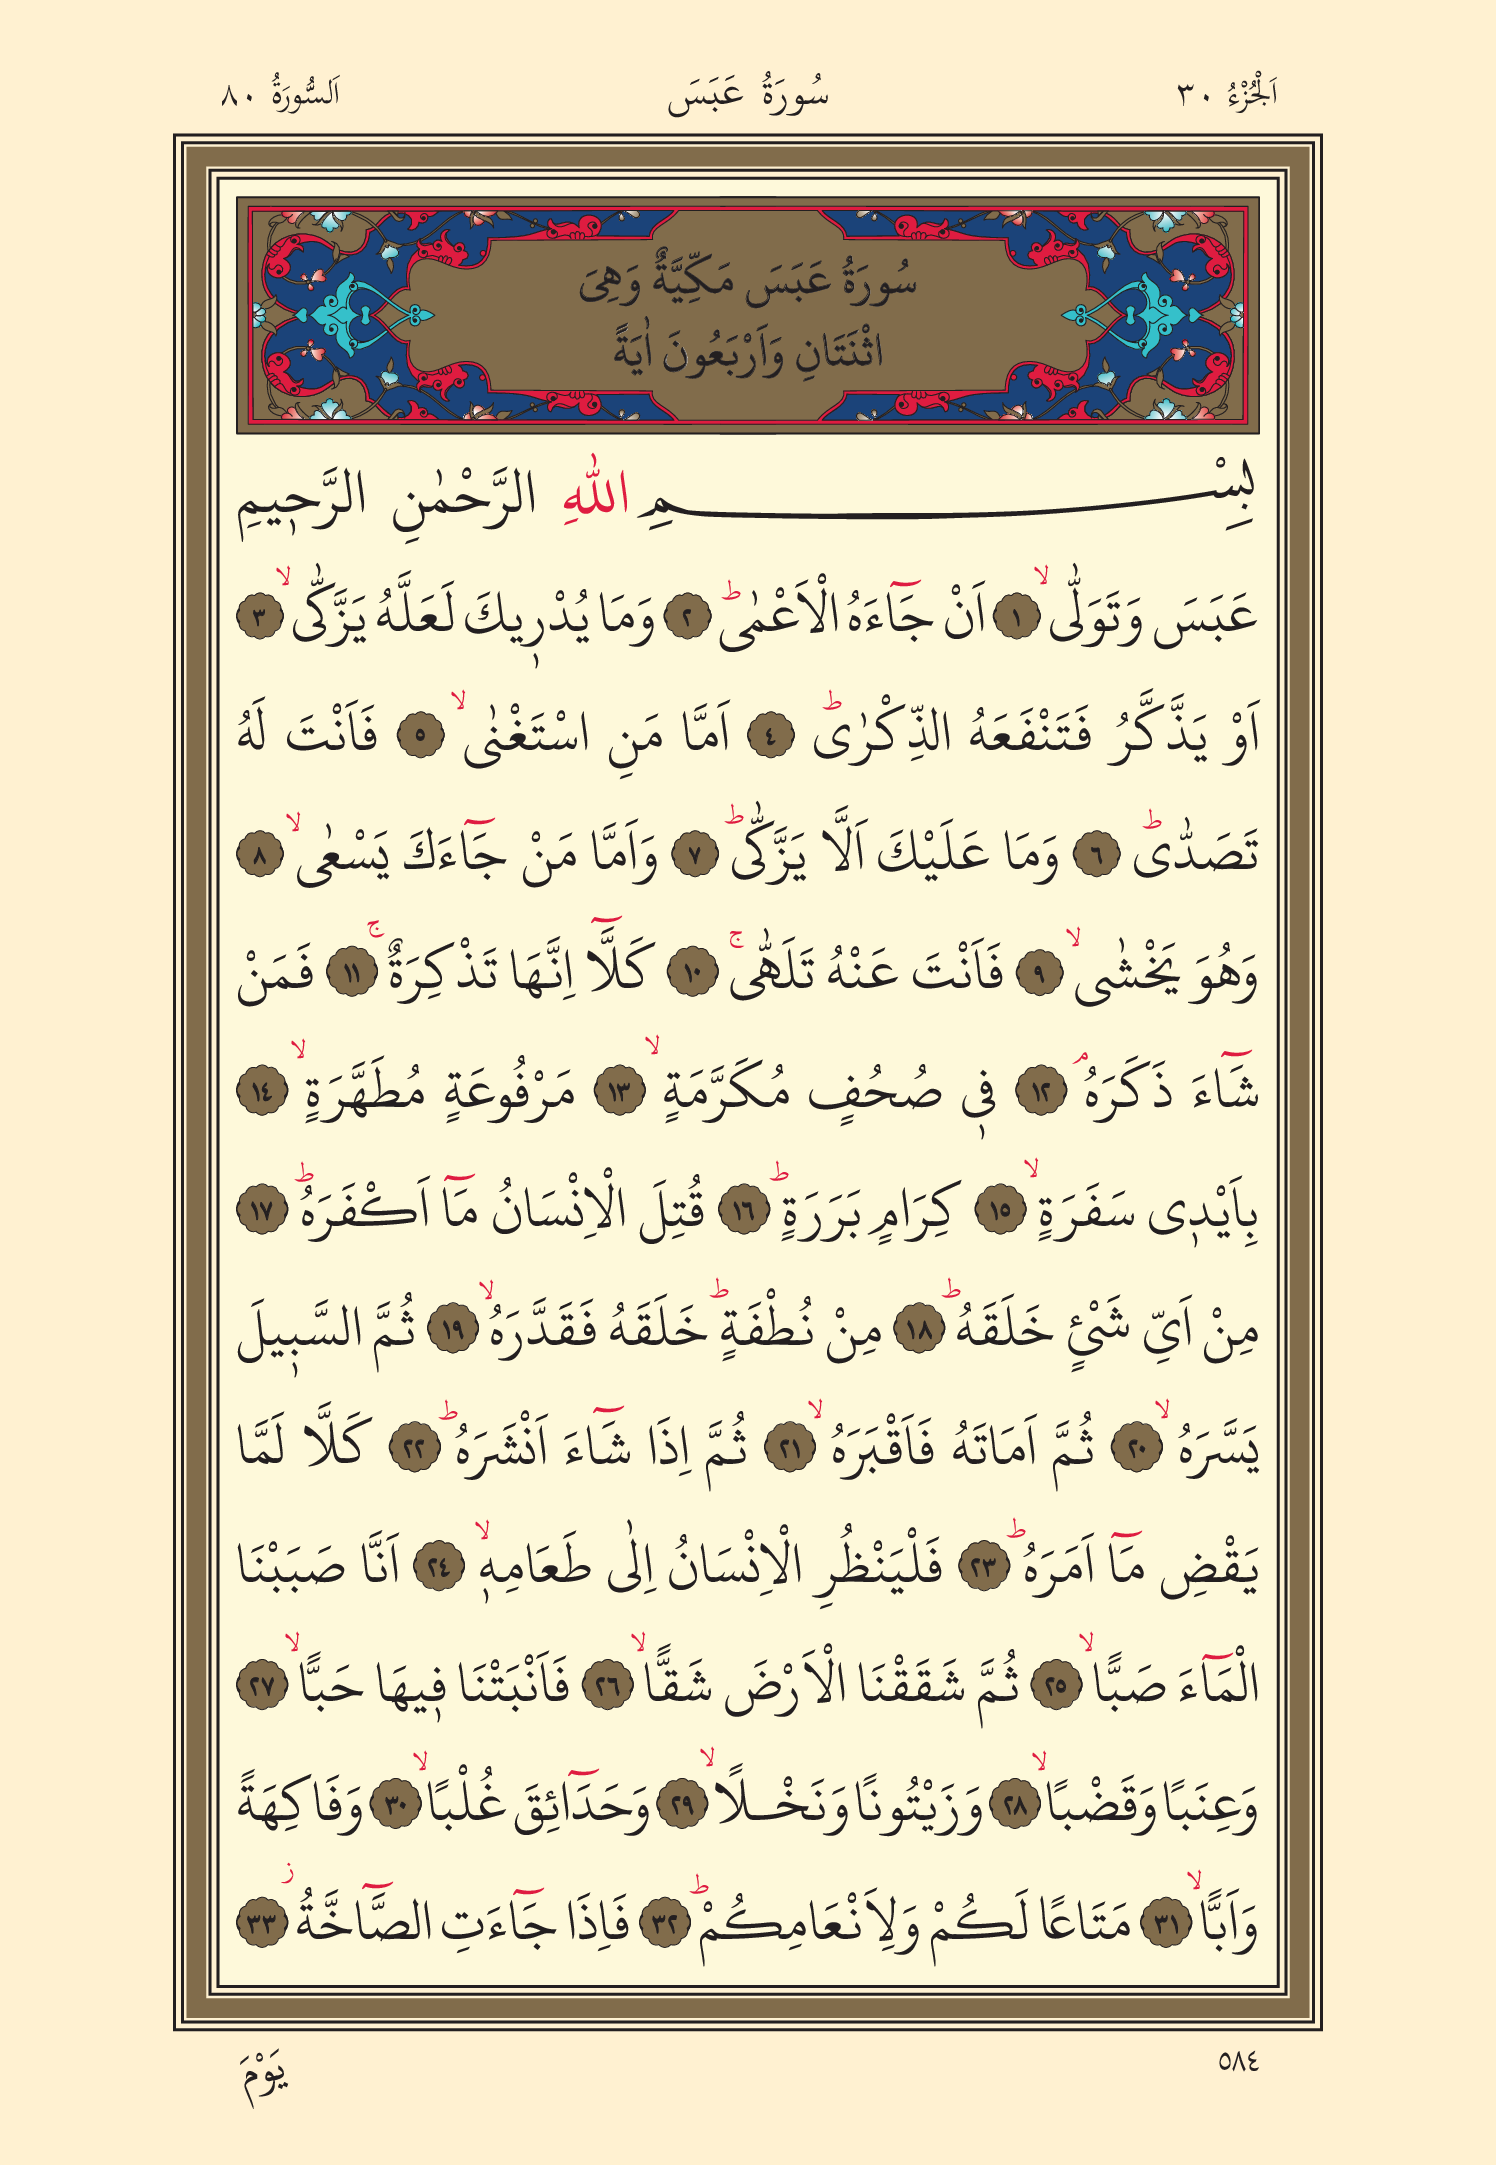 اَلْجُزْءُ ٣٠ سُورَةُ عَبَسَ اَلسُّورَةُ ٨٠
سُورَةُ عَبَسَ مَكِّيَّةٌ وَهِىَ
اثْنَتَانِ وَاَرْبَعُونَ اٰيَةً
بِسْــــــــمِ اللّٰهِ الرَّحْمٰنِ الرَّح۪يمِ
عَبَسَ وَتَوَلّٰىۙ ١ اَنْ جَٓاءَهُ الْاَعْمٰىۜ ٢ وَمَا يُدْر۪يكَ لَعَلَّهُ يَزَّكّٰىۙ ٣
اَوْ يَذَّكَّرُ فَتَنْفَعَهُ الذِّكْرٰىۜ ٤ اَمَّا مَنِ اسْتَغْنٰىۙ ٥ فَاَنْتَ لَهُ
تَصَدّٰىۜ ٦ وَمَا عَلَيْكَ اَلَّا يَزَّكّٰىۜ ٧ وَاَمَّا مَنْ جَٓاءَكَ يَسْعٰىۙ ٨
وَهُوَ يَخْشٰىۙ ٩ فَاَنْتَ عَنْهُ تَلَهّٰىۚ ١٠ كَلَّٓا اِنَّهَا تَذْكِرَةٌۚ ١١ فَمَنْ
شَٓاءَ ذَكَرَهُۢ ١٢ ف۪ى صُحُفٍ مُكَرَّمَةٍۙ ١٣ مَرْفُوعَةٍ مُطَهَّرَةٍۙ ١٤
بِاَيْد۪ى سَفَرَةٍۙ ١٥ كِرَامٍ بَرَرَةٍۜ ١٦ قُتِلَ الْاِنْسَانُ مَٓا اَكْفَرَهُۜ ١٧
مِنْ اَىِّ شَىْئٍ خَلَقَهُۜ ١٨ مِنْ نُطْفَةٍۜ خَلَقَهُ فَقَدَّرَهُۙ ١٩ ثُمَّ السَّب۪يلَ
يَسَّرَهُۙ ٢٠ ثُمَّ اَمَاتَهُ فَاَقْبَرَهُۙ ٢١ ثُمَّ اِذَا شَٓاءَ اَنْشَرَهُۜ ٢٢ كَلَّا لَمَّا
يَقْضِ مَٓا اَمَرَهُۜ ٢٣ فَلْيَنْظُرِ الْاِنْسَانُ اِلٰى طَعَامِه۪ۙ ٢٤ اَنَّا صَبَبْنَا
الْمَٓاءَ صَبًّاۙ ٢٥ ثُمَّ شَقَقْنَا الْاَرْضَ شَقًّاۙ ٢٦ فَاَنْبَتْنَا ف۪يهَا حَبًّاۙ ٢٧
وَعِنَبًا وَقَضْبًاۙ ٢٨ وَزَيْتُونًا وَنَخْـلًاۙ ٢٩ وَحَدَٓائِقَ غُلْبًاۙ ٣٠ وَفَاكِهَةً
وَاَبًّاۙ ٣١ مَتَاعًا لَكُمْ وَلِاَنْعَامِكُمْۜ ٣٢ فَاِذَا جَٓاءَتِ الصَّٓاخَّةُۘ ٣٣
٥٨٤ يَوْمَ